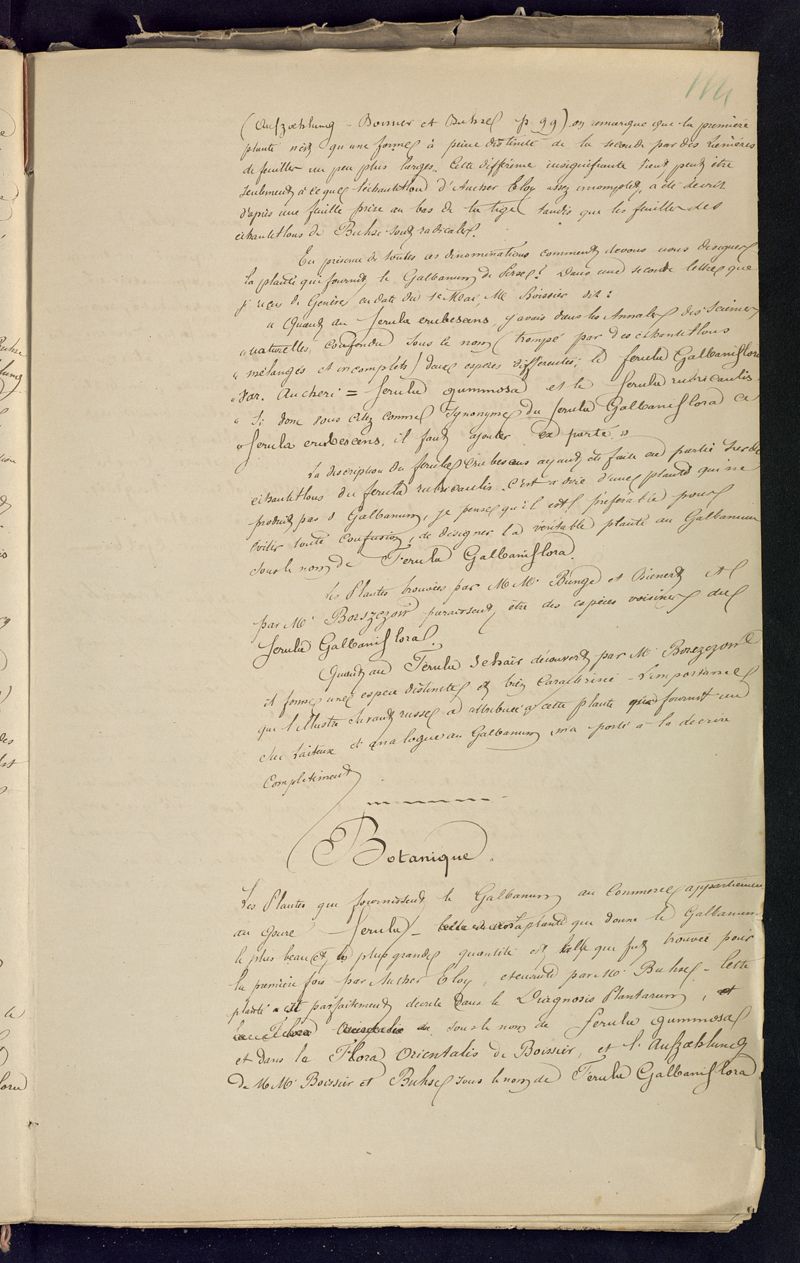 144
(Aufzæhlung - Boissier et Buhse p 99) on remarque que la première
plante n'est qu'une forme à peine distincte de la seconde par des lanières
de feuilles un peu plus larges. Cette différence insignifiante tient peut être
seulement à ce que l'échantillon d'Aucher Eloy assez incomplet, a été décrit
d'après une feuille prise au bas de la tige tandis que les feuilles des
échantillons de Buhse sont radicales.
En présence de toutes ces dénominations comment devons nous désigner
la plante qui fournit le Galbanum de Perse? Dans une seconde lettre que
j'ai reçu de Genève en date du 1er Mai, Mr Boissier dit:
« Quant au Ferula erubescens, j'avais dans les Annales des Sciences
« naturelles, confondu sous le nom (trompé par des échantillons
« mélangés et incomplets) deux espèces différentes; le Ferula Galbaniflora
« Var. Aucheri = Ferula gummosa et le Ferula rubricaulis.
« Si donc vous citez comme synonyme du Ferula Galbaniflora ce
« Ferula erubescens, il faut ajouter ex parte »
La description du ferula erubescens ayant été faite en partie sur des
échantillons du ferula rubricaulis, c'est à dire d'une plante qui ne
produit pas de Galbanum, je pense qu'il est préférable pour
éviter toute confusion, de désigner la véritable plante au Galbanum
sous le nom de Ferula Galbaniflora.
Les Plantes trouvées par MMrs Bunge et Bienert et
par Mr Borszczow paraissent être des espèces voisines du
Ferula Galbaniflora.
Quant au Ferula Schaïr découvert par Mr Borszczow
il forme une espèce distincte et bien caractérisée. L'importance
que l'illustre savant russe a attribuée à cette plante qui fournit un
suc laiteux et analogue au Galbanum m'a porté à la décrire
complètement
Botanique.
Les Plantes qui fournissent le Galbanum au Commerce appartiennent
au genre Ferula. plante qui donne le Galbanum
le plus beau et en plus grande quantité est celle qui fut trouvée pour
la première fois par Aucher Eloy, et ensuite par Mr Buhse. Cette
plante est parfaitement décrite dans le Diagnosis Plantarum,
sous le nom de Ferula gummosa
et dans la Flora Orientalis de Boissier, et l'Aufzæhlung
de MMrs Boissier et Buhse sous le nom de Ferula Galbaniflora